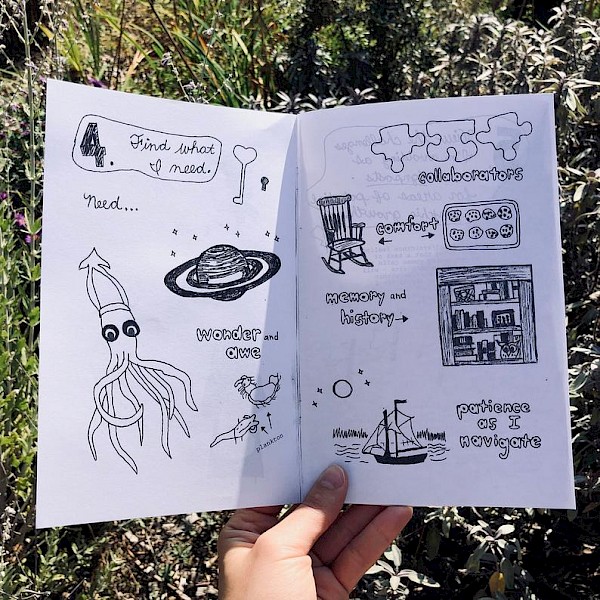 4. Find what
I need.
Need...
wonder and
awe
plankton
collaborators
comfort
memory and
history
patience
as I
navigate